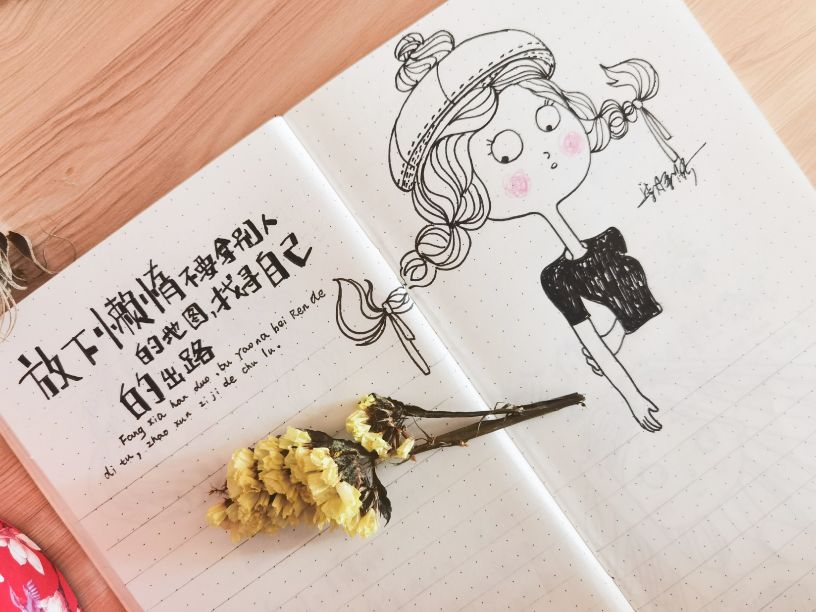 放下懒惰不要拿别人
的地图,找寻自己
的出路
Fang xia han duo .bu yaona bei Ren de
di tu, zhao xun zi ji de chu lu.